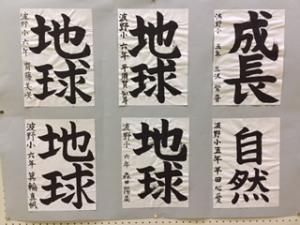 成長
波野小 五年
地球
波野小 六年
地球
波野小 六年
自然
波野小五年 早田心愛
地球
波野小 六年 森田陽菜
地球
波野小 六年 箕輪真帆